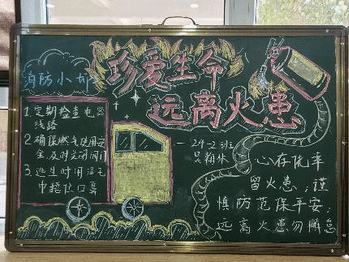 消防小知
珍爱生命
远离火患
1.定期检查电器
线路
2.确保燃气使用安
全及时关闭阀门
3.逃生时用湿毛
巾捂住口鼻
24-2班
心存侥幸
留火患；谨
慎防范保平安；
远离火患勿懈怠